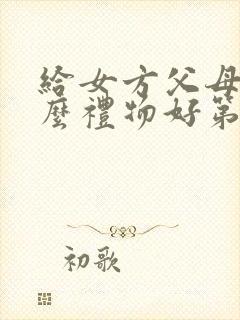 給女方父母
麼禮物好第
初歌